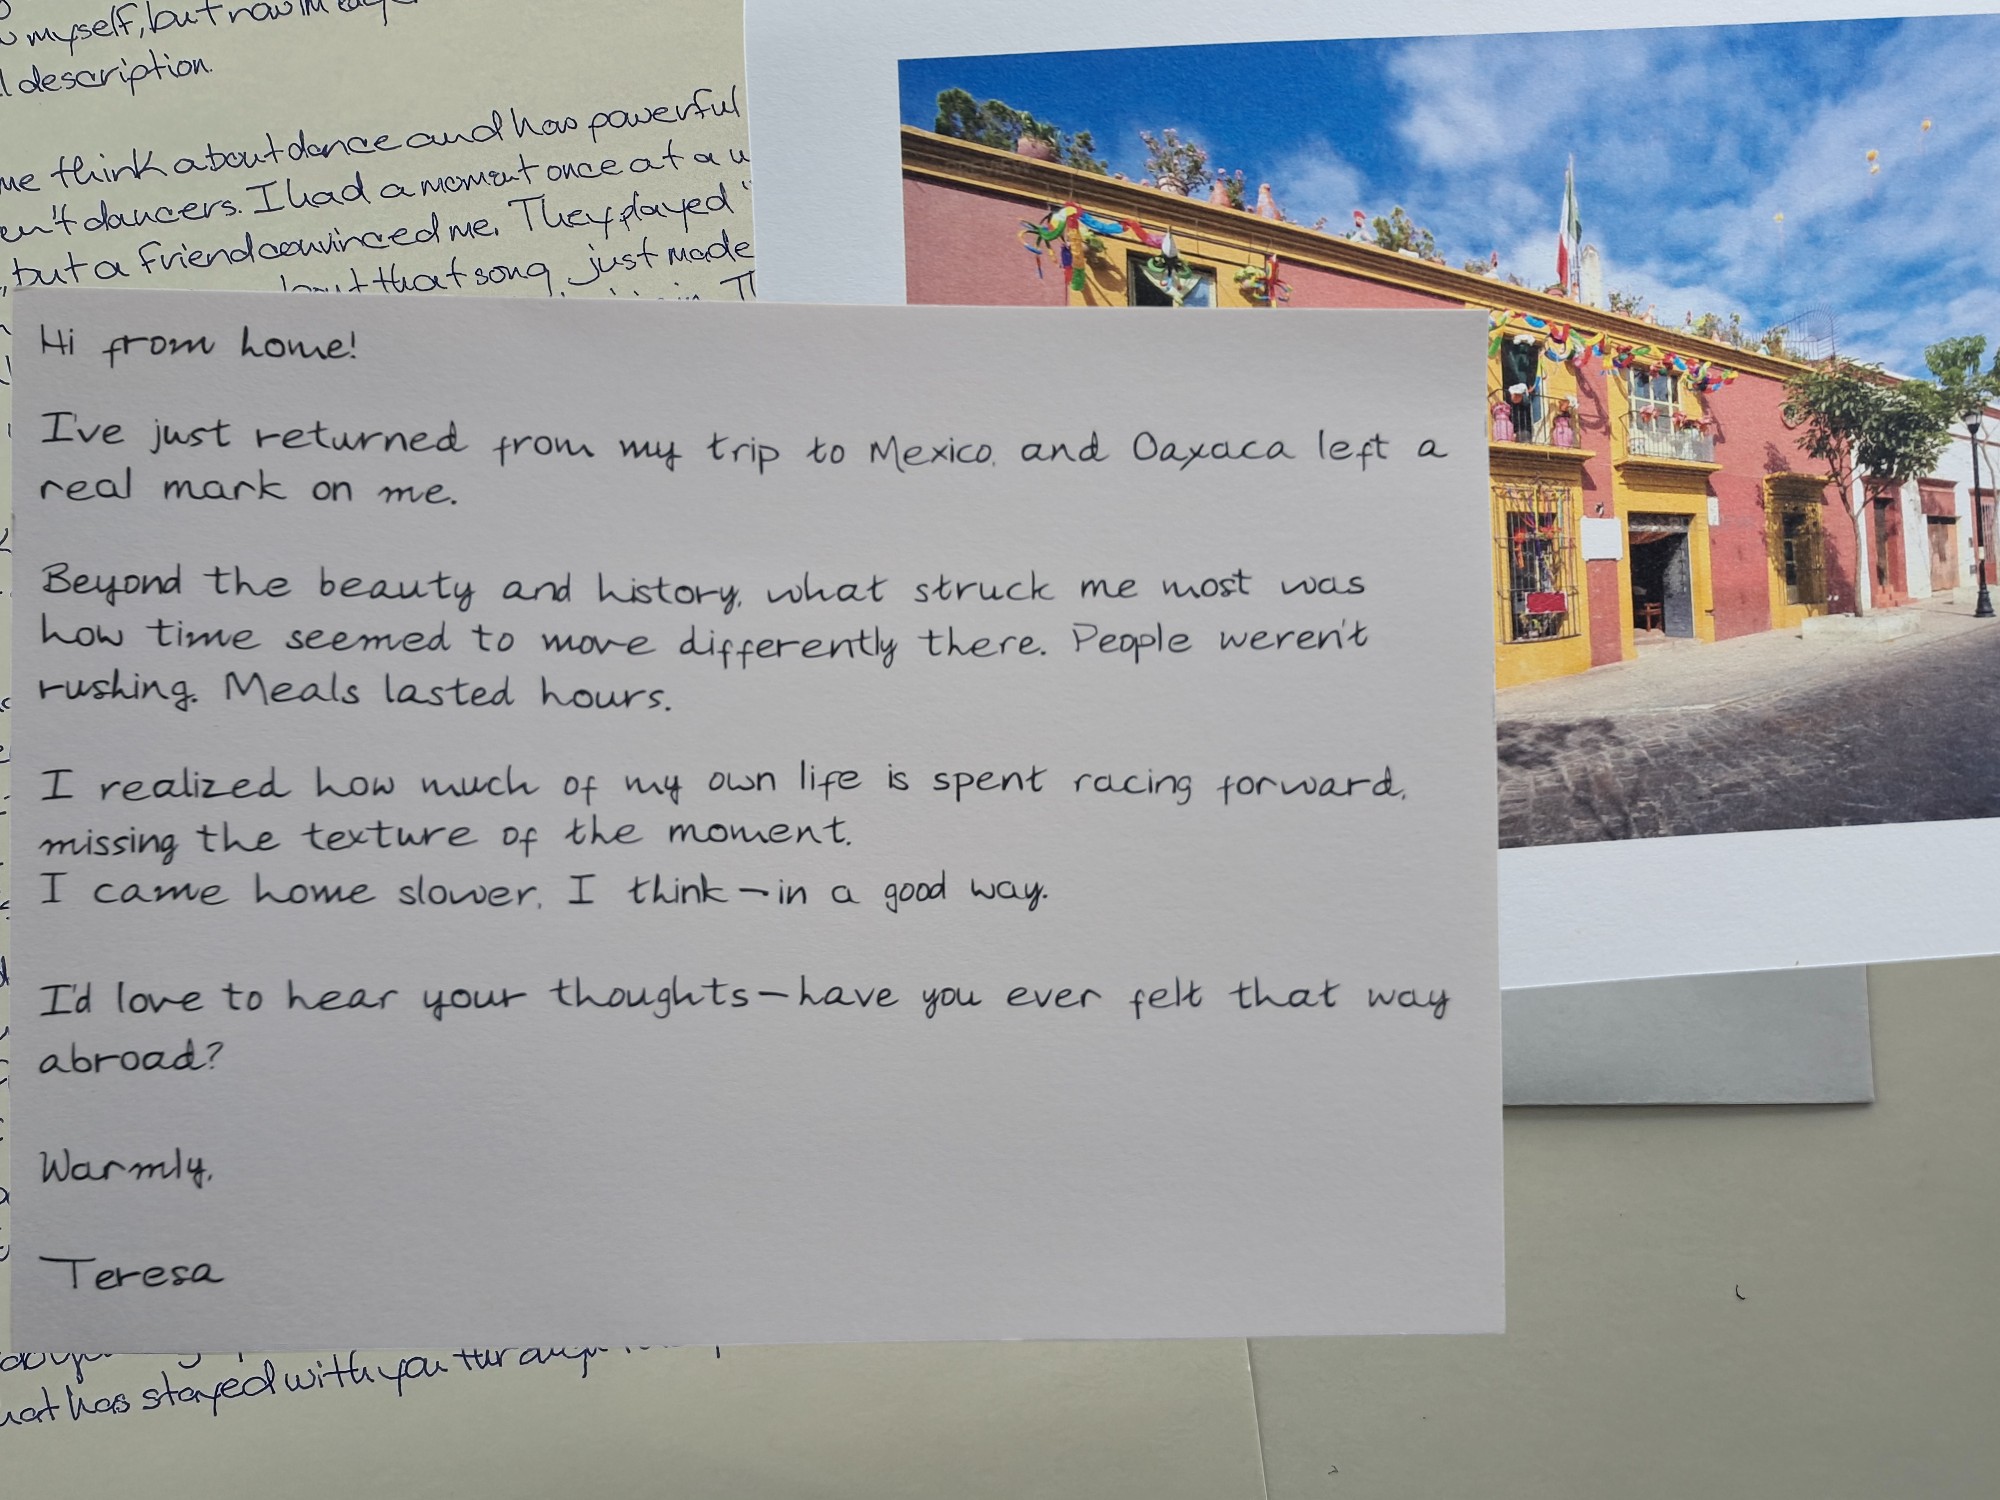 myself, but now
description.
me think about dance and how powerful
en't dancers. I had a moment once at a
but a friend convinced me. They played "
but that song just made
Hi from home!
I've just returned from my trip to Mexico, and Oaxaca left a
real mark on me.
Beyond the beauty and history, what struck me most was
how time seemed to move differently there. People weren't
rushing. Meals lasted hours.
I realized how much of my own life is spent racing forward,
missing the texture of the moment.
I came home slower, I think—in a good way.
I'd love to hear your thoughts—have you ever felt that way
abroad?
Warmly,
Teresa
has stayed with you through